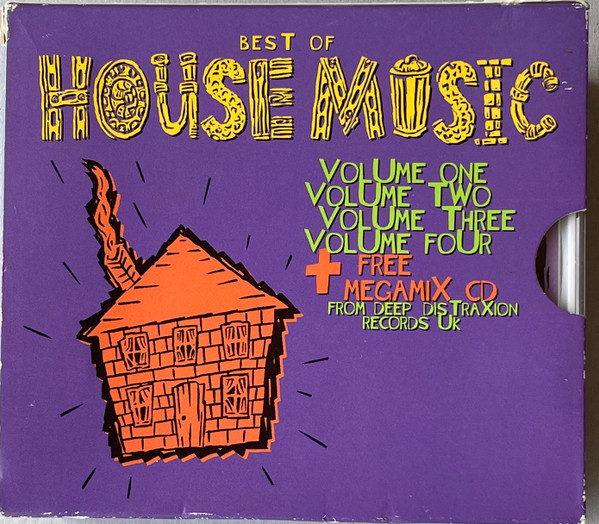 BEST OF
HOUSE MUSIC
VOLUME ONE
VOLUME TWO
VOLUME THREE
VOLUME FOUR
+ FREE
MEGAMIX CD
FROM DEEP DISTRAXION
RECORDS UK